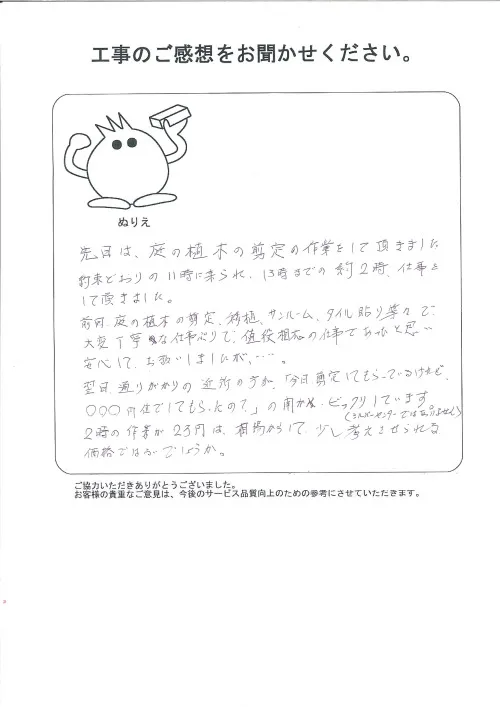 工事のご感想をお聞かせください。
ぬりえ
先日は、庭の植木の剪定の作業をして頂きました
約束どおりの11時に来られ、13時までの約2時、仕事を
して頂きました。
前回、庭の植木の剪定、移植、サンルーム、タイル貼り等々で、
大変丁寧な仕事ぶりで、値段相応の仕事であったと思い
安心して、お願いしましたが、…。
翌日、通りがかりの近所の方が、「今日剪定してもらっているけれど、
○○○円位でしてもらったの?」の聞かれ、ビックリしています。
(シルバーセンターではありません)
2時の作業が23円は、相場からして、少し考えさせられる
価格ではないでしょうか。
ご協力いただきありがとうございました。
お客様の貴重なご意見は、今後のサービス品質向上のための参考にさせていただきます。